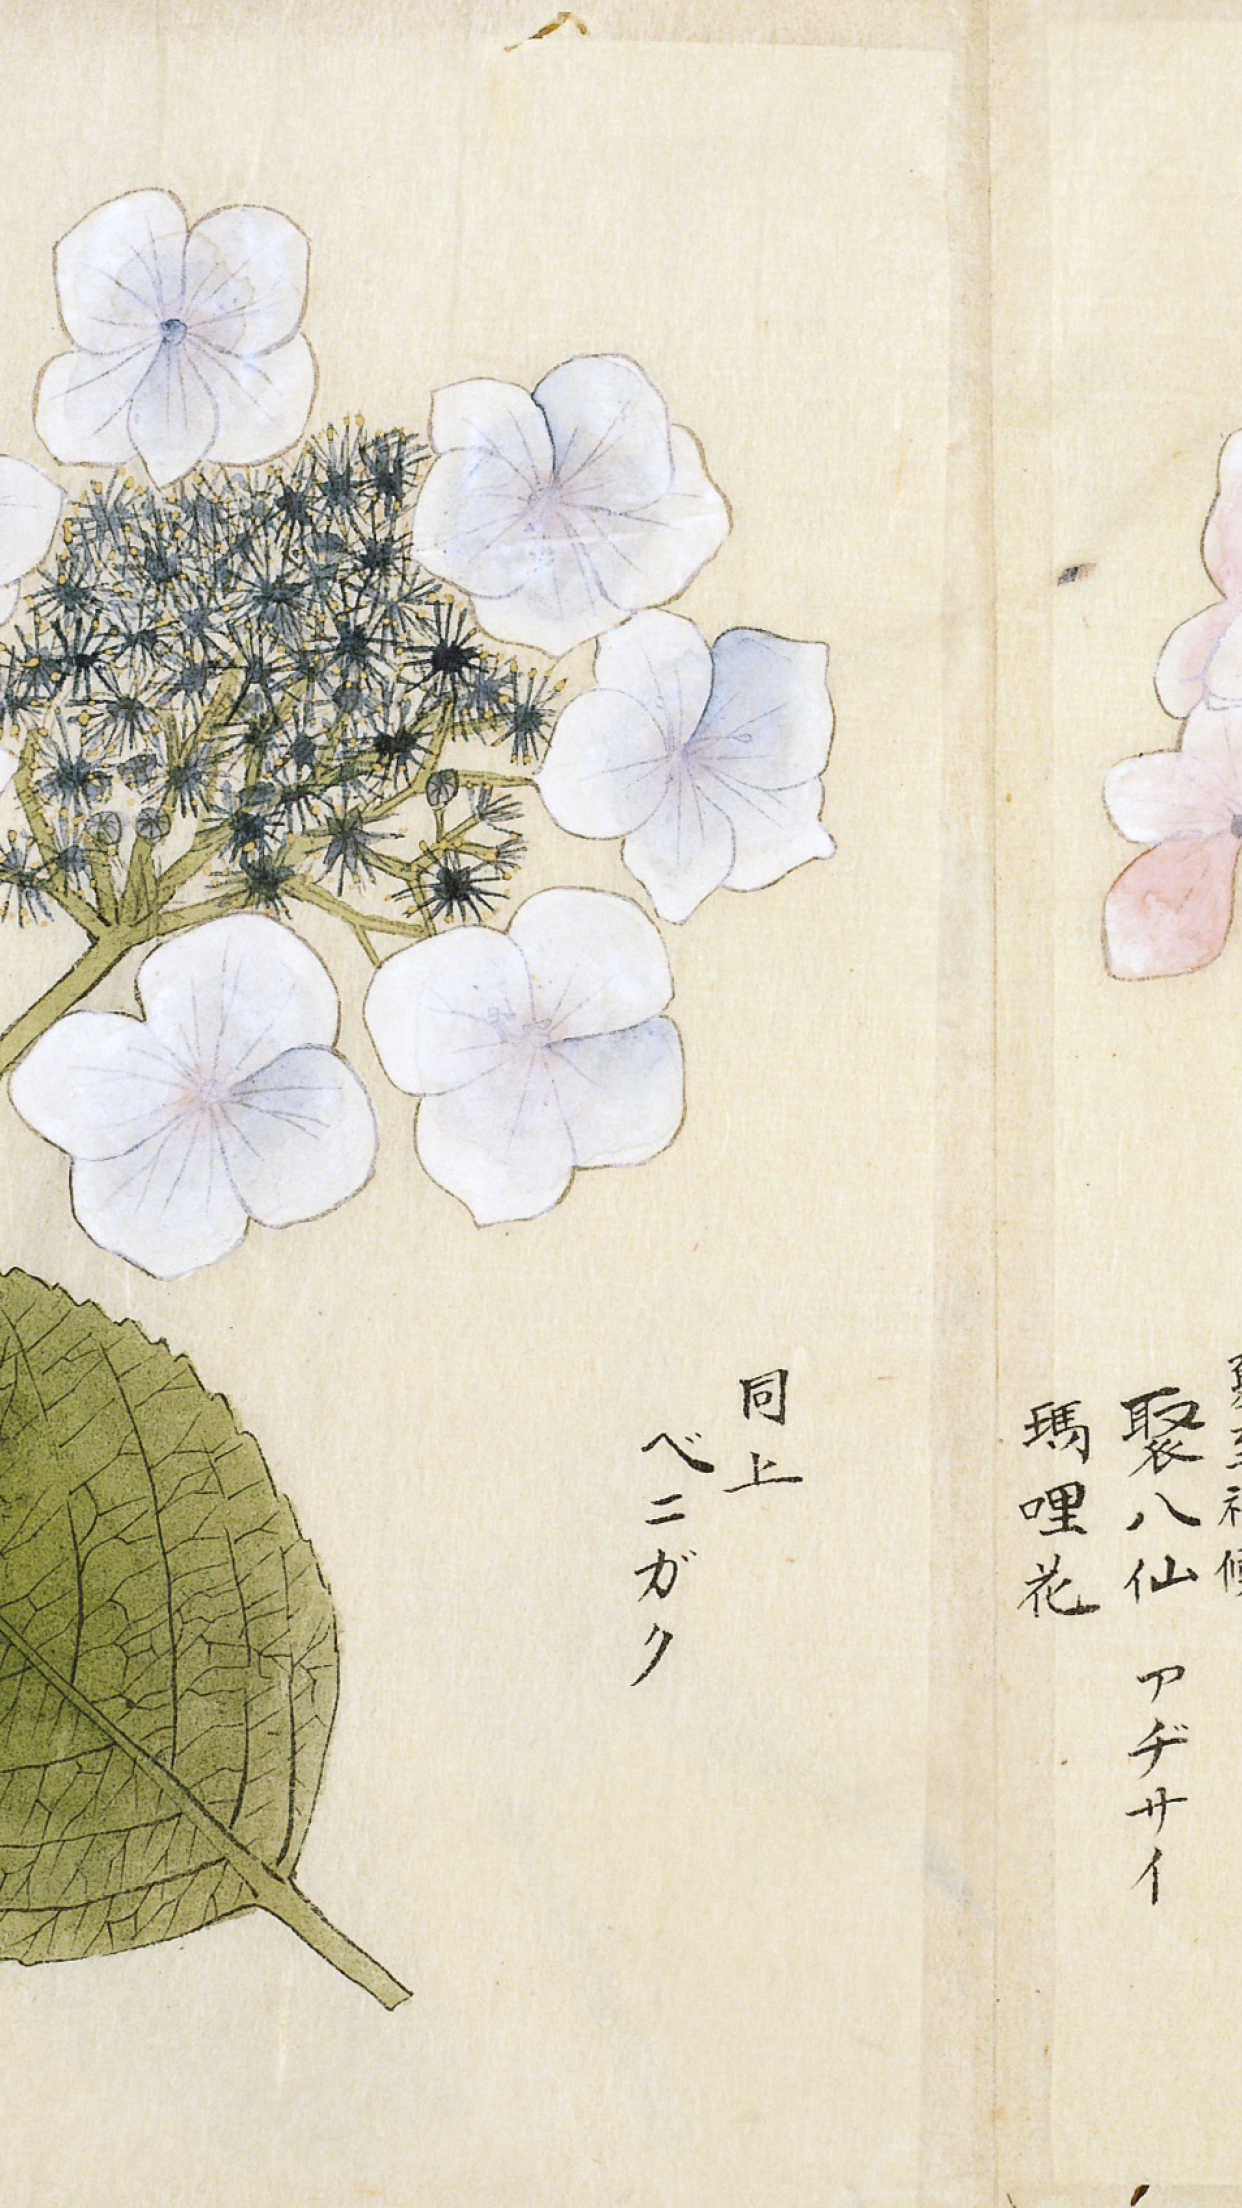 聚八仙 アヂサイ
瑪哩花
同上
ベニガク